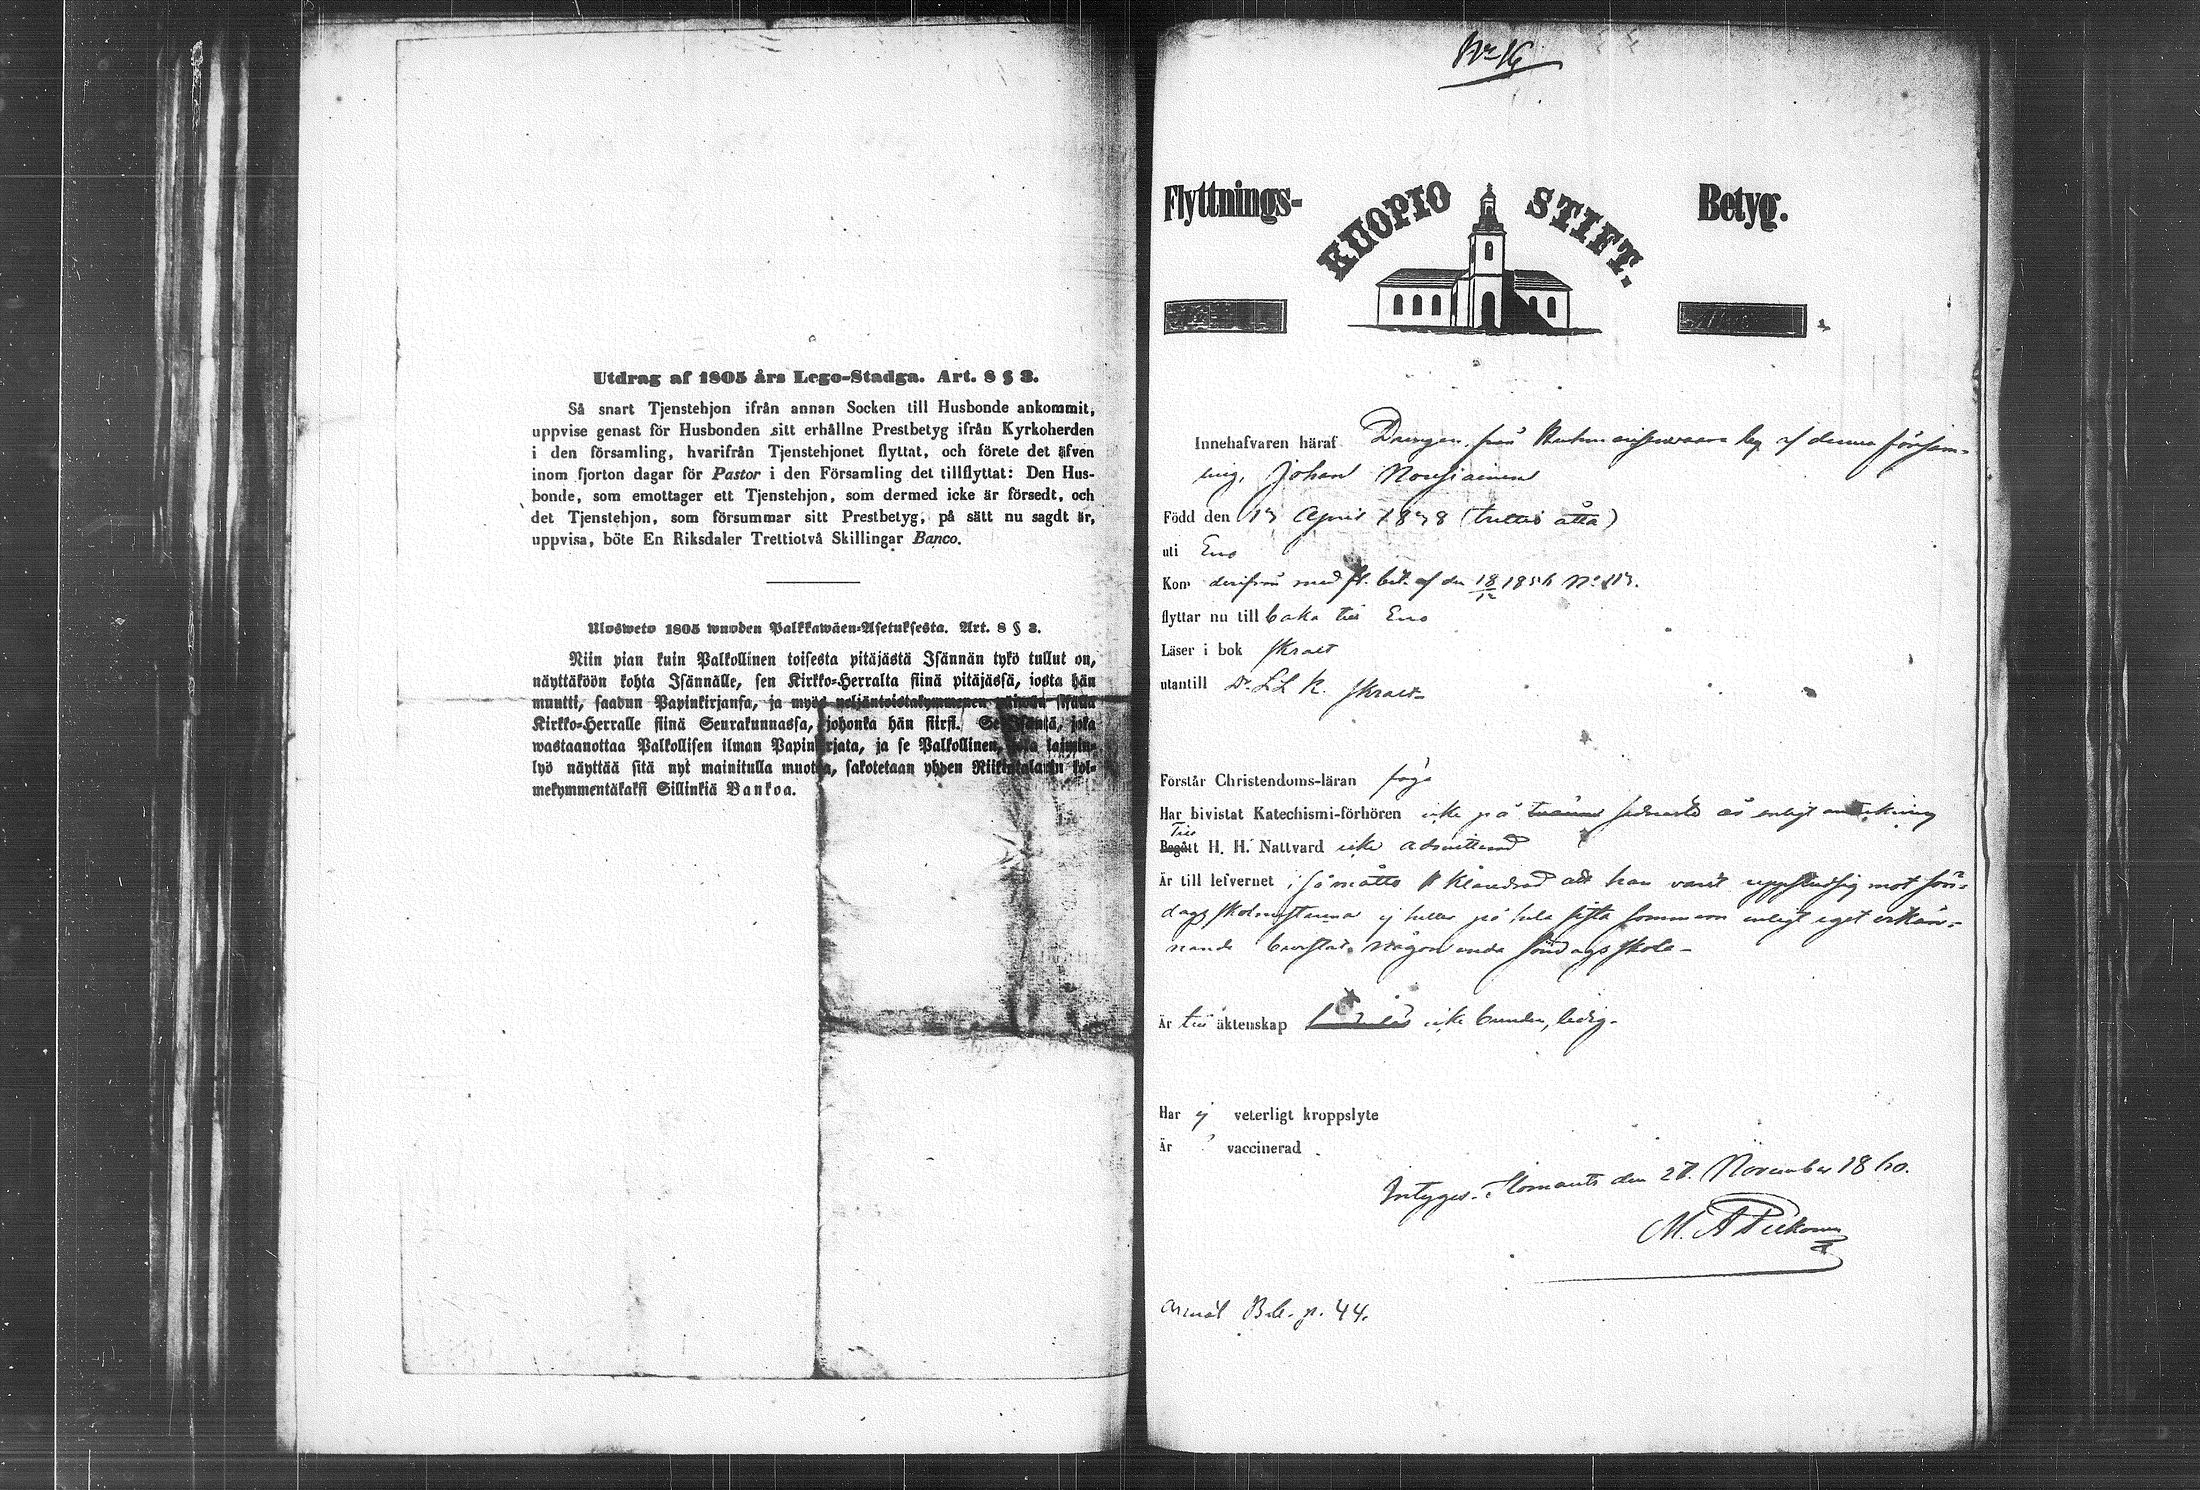 Utdrag af 1805 års Lego-Stadga. Art. 8 § 3.
Så snart Tjenstehjon ifrån annan Socken till Husbonde ankommit,
uppvise genast för Husbonden sitt erhållne Prestbetyg ifrån Kyrkoherden
i den församling, hvarifrån Tjenstehjonet flyttat, och förete det äfven
inom fjorton dagar för Pastor i den Församling det tillflyttat: Den Hus-
bonde, som emottager ett Tjenstehjon, som dermed icke är försedt, och
det Tjenstehjon, som försummar sitt Prestbetyg, på sätt nu sagdt är,
uppvisa, böte En Riksdaler Trettiotvå Skillingar Banco.
Ulosweto 1805 wuoden Palkkawäen-Asetuksesta. Art. 8 § 3.
Niin pian kuin Palkollinen toisesta pitäjästä Isännän tykö tullut on,
näyttäköön kohta Isännälle, sen Kirkko-Herralta siinä pitäjässä, josta hän
muutti, saadun Papinkirjansa, ja myös neljäntoistakymmenen päiwän sisällä
Kirkko-Herralle siinä Seurakunnassa, johonka hän siirsi. Se Isäntä, joka
wastaanottaa Palkollisen ilman Papinkirjata, ja se Palkollinen, joka laimin-
lyö näyttää sitä nyt mainitulla muotoa, sakotetaan yhden Riikintalarin kol-
mekymmentäkaksi Sillinkiä Bankoa.
Nr 16
Flyttnings- KUOPIO STIFT. Betyg.
Innehafvaren häraf Drengen från by af denna försam-
ling, Johan Nousiainen
Född den 17 April 1838 (trettio åtta)
uti Eno
Kom derifrån med fl. bet. af den 18/12 1856 No 117.
flyttar nu till baka till Eno
Läser i bok skralt
utantill D:r L. L. K. skralt
Förstår Christendoms-läran föga
Har bivistat Katechismi-förhören icke på sednaste år enligt anteckning
Till
Begått H. H. Nattvard icke admitterad
Är till lefvernet i så måtto klandrad att han varit uppstudsig mot sön-
dags skolmästarna ej heller på hela sista sommaren enligt eget erkän-
nande bevistat någon enda söndags skola
Är till äktenskap icke bunden, ledig.
Har ej veterligt kroppslyte
Är vaccinerad
Intygas. Ilomants den 27. November 1860.
M. A.
Bib. p. 44.